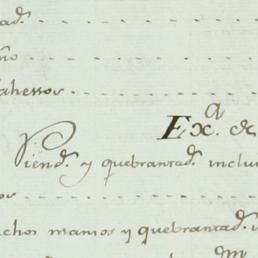 ad.
ño
dahessos
Ex.ª &
Piend.º y quebrantad.º inclu
os
uchos manios y quebrantad.º i